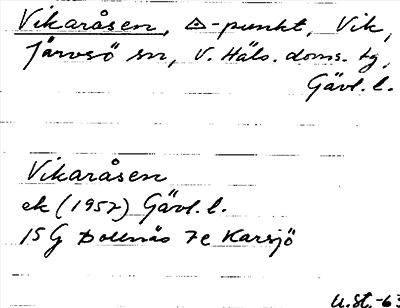 Vikaråsen, △-punkt, Vik,
Järvsö sn, V. Häls. doms. tg,
Gävl. l.
Vikaråsen
ek (1957) Gävl. l.
15G Bollnäs 7e Karsjö
U.St.-63